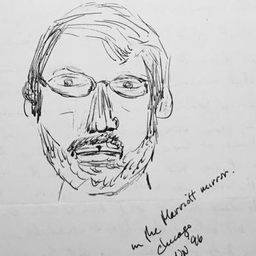 in the Marriott mirror.
Chicago
96